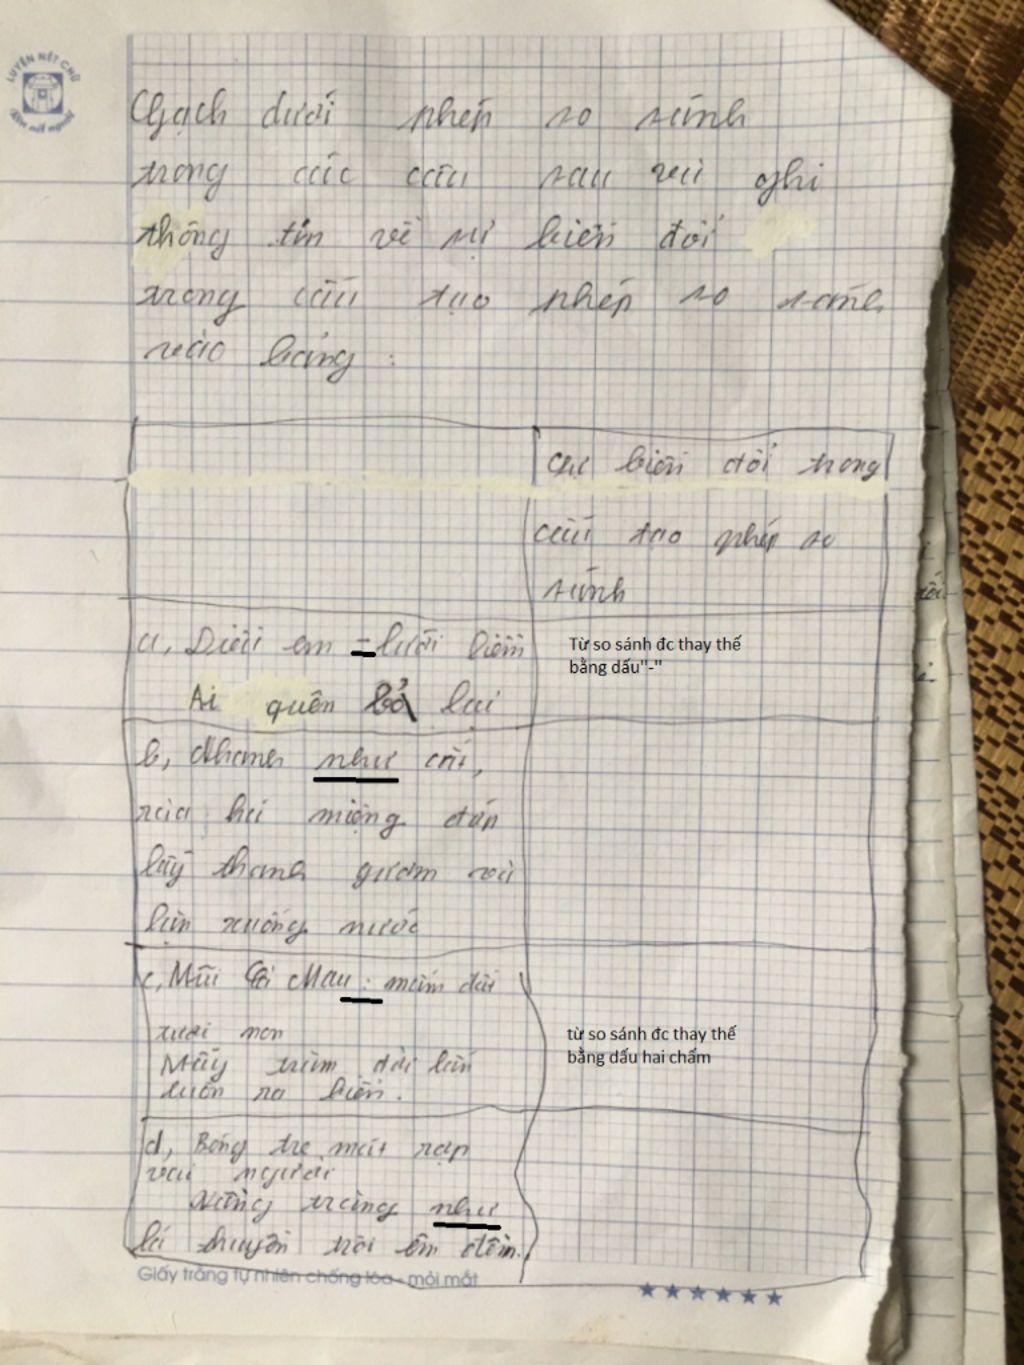 LUYỆN NÉT CHỮ
Gạch dưới phép so sánh
trong các câu sau và ghi
thông tin về sự biến đổi
trong cấu tạo phép so sánh
vào bảng :
sự biến đổi trong
cấu tạo phép so
sánh
a, Diều em - lưỡi liềm
Ai quên bỏ lại
Từ so sánh đc thay thế
bằng dấu"-"
b, Nhanh như cắt,
rùa há miệng đớp
lấy thanh gươm và
lặn xuống nước
c, Mũi Cà Mau : mầm đất
tươi non
Mấy trăm đời lấn
luôn ra biển.
từ so sánh đc thay thế
bằng dấu hai chấm
d, Bóng tre mát rợp
vai người
Vầng trăng như
lá thuyền trôi êm đềm.
Giấy trắng tự nhiên chống lóa - mỏi mắt